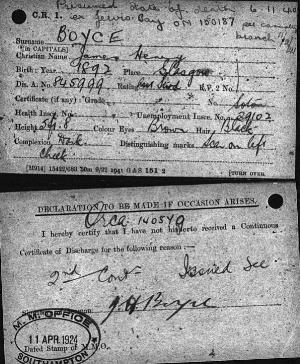 Presumed date of death 6.11.40
C.R. 1. as Jervis Bay O.N 150187 per casualty
branch
BOYCE
Surname
[in CAPITALS]
Christian Name James Henry
Birth: Year 1892 Place Glasgow
Dis. A. No. 845999 Rating R.P. 2 No.
Certificate (if any): Grade No.
Health Insce. No. Unemployment Insce. No.
Height 5ft. 8 Colour Eyes Brown Hair Black
Complexion Dark Distinguishing marks Scar on left
cheek
[TURN OVER.
DECLARATION TO BE MADE IF OCCASION ARISES.
Orca 140549
I hereby certify that I have not hitherto received a Continuous
Certificate of Discharge for the following reason:—
2nd Cont Issued See
J H Boyce
M. M. OFFICE
11 APR. 1924
Dated Stamp of
SOUTHAMPTON
4